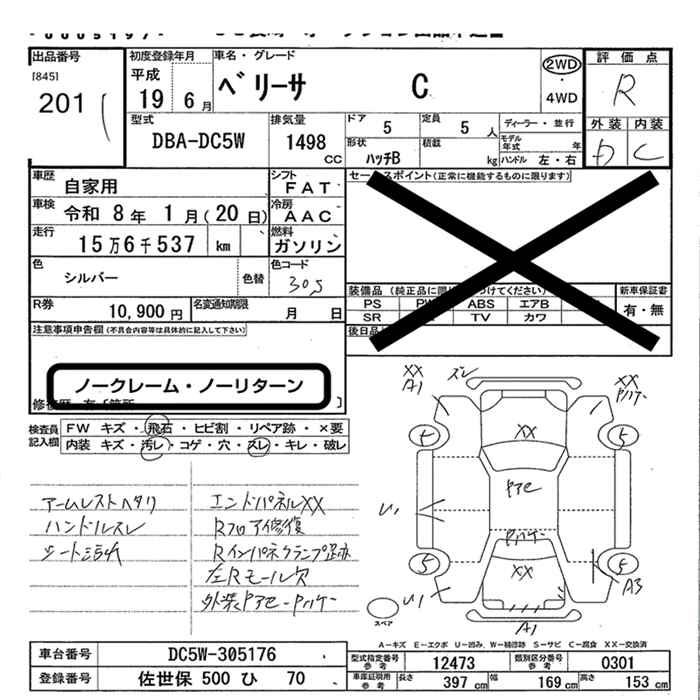 出品番号
[845]
201
初度登録年月
平成
19 6月
車名・グレード
ベリーサ C
2WD
・
4WD
評価点
R
外装 内装
D C
型式
DBA-DC5W
排気量
1498
CC
ドア
5
定員
5 人
ディーラー・並行
形状
ハッチB
積載
kg
モデル年式 年
ハンドル 左・右
車歴
自家用
シフト
FAT
車検
令和 8年 1月(20日)
冷房
AAC
走行
15万6千537 km
燃料
ガソリン
色
シルバー
色替
色コード
305
R券
10,900円
名変通知期限
月 日
セールスポイント(正常に機能するものに限ります)
装備品
PS ABS エアB
SR TV カワ
新車保証書
有・無
後日品
注意事項申告欄(不具合内容等は具体的に記入して下さい)
ノークレーム・ノーリターン
検査員記入欄
FW キズ・飛石・ヒビ割・リペア跡・×要
内装 キズ・汚レ・コゲ・穴・スレ・キレ・破レ
アームレストヘタリ
ハンドルスレ
シート汚れ
エンドパネルXX
Rフロア修復
Rインパネクランプ跡
左Rモール欠
外装Pアセ-Pハゲー
XX
A1
ズレ
XX
Pハゲー
XX
5
Pアセ
U1
Pハゲー
5
5
XX
U1
A3
A1
スペア
A-キズ E-エクボ U-凹み、W-補修跡 S-サビ C-腐食 XX-交換済
車台番号
DC5W-305176
登録番号
佐世保 500 ひ 70
型式指定番号
参考
12473
類別区分番号
参考
0301
車庫証明用
参考
長さ
397 cm
幅
169 cm
高さ
153 cm